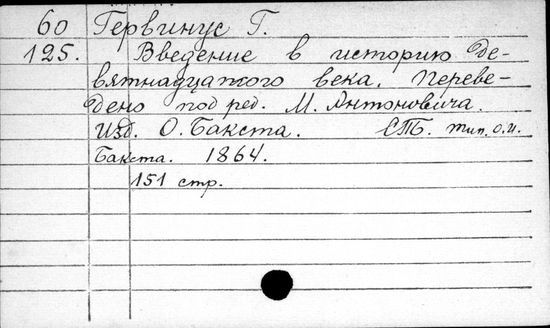 60 Гервинус Г.
125. Введение в историю де-
вятнадцатого века. Переве-
дено под ред. М. Антоновича.
Изд. О. Бакста. СПБ. тип. О.И.
Бакста. 1864.
151 стр.